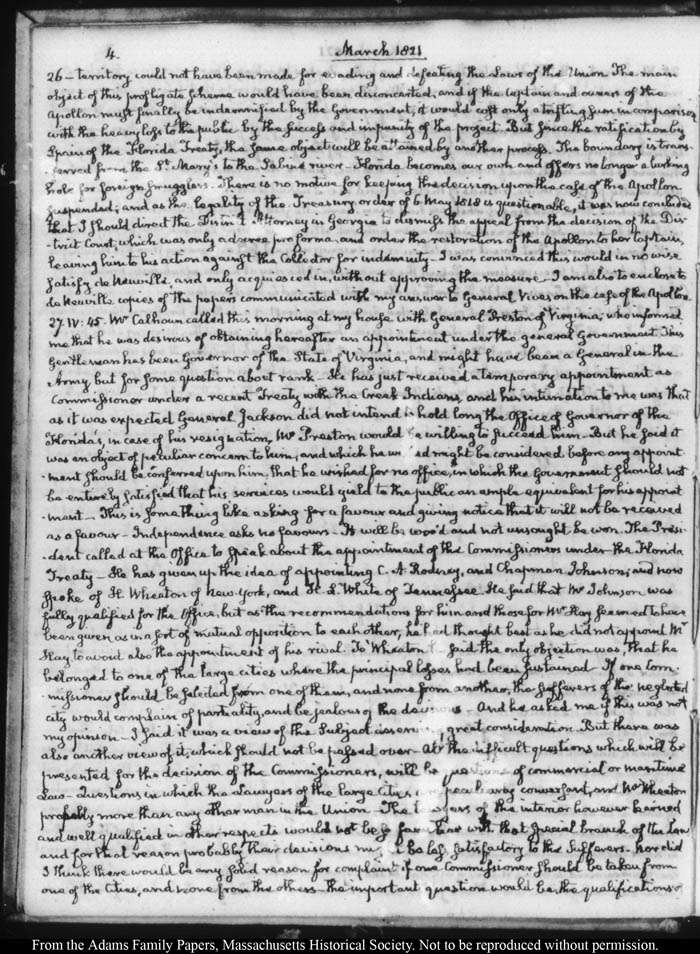 4.
March 1821
26 – territory could not have been made for evading and defeating the Laws of the Union The main
object of this profligate scheme would have been disconcerted, and if the Captain and owners of the
Apollon must finally be indemnified by the Government, it would cost only a trifling sum in comparison
with the heavy loss to the public by the success and impunity of the project. But since the ratification by
Spain of the Florida Treaty, the same object will be attained by another process. The boundary is trans-
-ferred from the St. Mary's to the Sabine river – Florida becomes our own and offers no longer a lurking
hole for foreign smugglers. There is no motive for keeping the decision upon the case of the Apollon
suspended; and as the legality of the Treasury order of 6 May 1818 is questionable, it was now concluded
that I should direct the District Attorney in Georgia to dismiss the appeal from the decision of the Dis-
-trict Court, which was only a decree pro forma, and order the restoration of the Apollon to her Captain,
leaving him to his action against the Collector for indemnity – I was convinced this would in no wise
satisfy de Neuville, and only acquiesced in, without approving the measure – I am also to enclose to
de Neuville copies of the papers communicated with my answer to General Vives on the case of the Apollon
27. IV: 45. Mr Calhoun called this morning at my house with General Preston of Virginia, who informed
me that he was desirous of obtaining hereafter an appointment under the general Government This
Gentleman has been Governor of the State of Virginia, and might have been a General in the
Army but for some question about rank – He has just received a temporary appointment as
Commissioner under a recent Treaty with the Creek Indians, and his intimation to me was that
as it was expected General Jackson did not intend to hold long the Office of Governor of the
Florida's, in case of his resignation, Mr Preston would be willing to succeed him – But he said it
was an object of peculiar concern to him, and which he wished might be considered before any appoint-
-ment should be conferred upon him, that he wished for no office, in which the Government should not
be entirely satisfied that his services would yield to the public an ample equivalent for his appoint
-ment – This is something like asking for a favour and giving notice that it will not be received
as a favour – Independence asks no favours – It will be woo'd and not unsought be won. The Presi-
-dent called at the Office to speak about the appointment of the Commissioners under the Florida
Treaty – He has given up the idea of appointing C. A Rodney, and Chapman Johnson; and now
spoke of H. Wheaton of New York, and H. L. White of Tennessee He said that Mr Johnson was
fully qualified for the Office, but as the recommendations for him and those for Mr Hay seemed to have
been given, as in a sort of mutual opposition to each other, he had thought best as he did not appoint Mr
Hay to avoid also the appointment of his rival. To Wheaton he said the only objection was, that he
belonged to one of the large cities where the principal losses had been sustained – If one Com-
-missioner should be selected from one of them, and none from another, the sufferers of the neglected
city would complain of partiality, and be jealous of the decisions – And he asked me if this was not
my opinion – I said it was a view of the subject deserving great consideration. But there was
also another view of it, which should not be passed over – All the difficult questions which will be
presented for the decision of the Commissioners, will be questions of commercial or maritime
Law – Questions in which the Lawyers of the large cities, are peculiarly conversant, and Mr Wheaton
probably more than any other man in the Union. The Lawyers of the interior however learned
and well qualified in other respects would not be so familiar with that special branch of the Law
and for that reason probably their decisions might be less satisfactory to the sufferers. Nor did
I think there would be any solid reason for complaint if one Commissioner should be taken from
one of the Cities, and none from the others – The important question would be, the qualifications
From the Adams Family Papers, Massachusetts Historical Society. Not to be reproduced without permission.